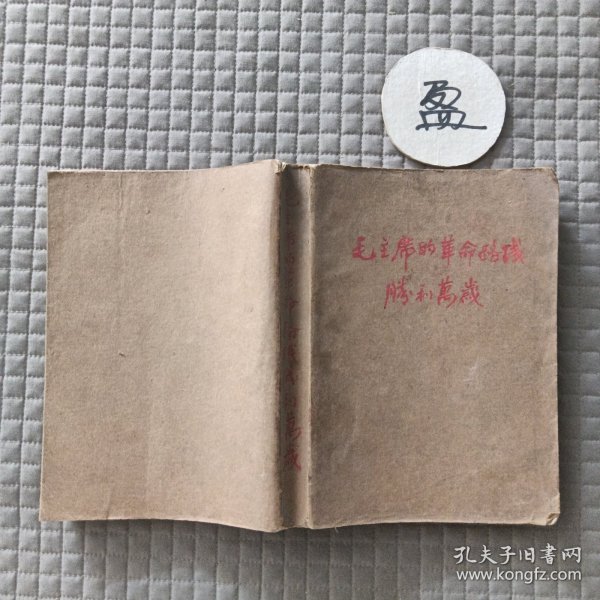 盈
毛主席的革命路线
勝利萬歲
萬歲
孔夫子旧书网
www.kongfz.com